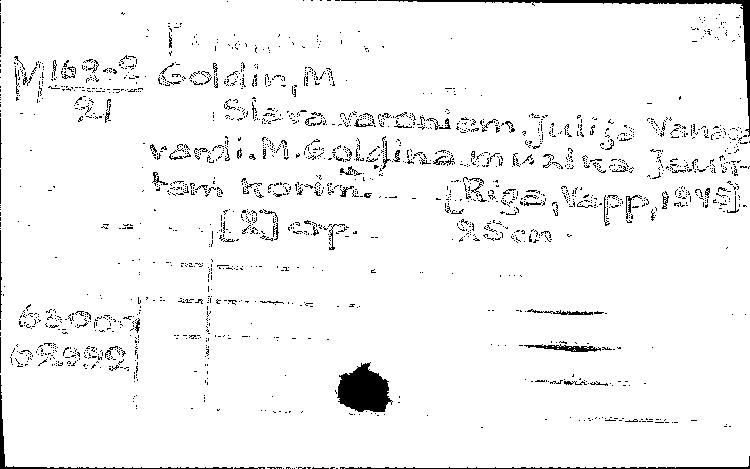 M 162-2 Goldin, M
21
Slava varoniem. Julija Vanaga
vardi. M. Goldina muzika Jaukt-
tam korim. [Riga, Vapp, 1945].
[2] стр. 25 cm.
62992